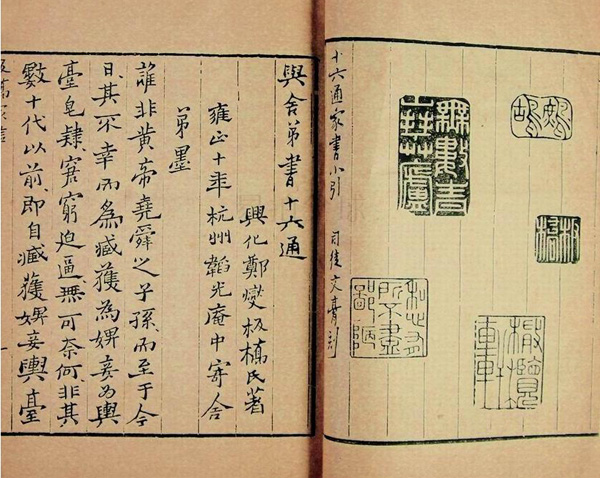 鷓鴣
無數青山拜草廬
板橋
私心有所不盡鄙陋
橄欖軒
十六通家書小引 司徒文膏刻
與舍弟書十六通
興化鄭燮板橋氏著
雍正十年杭州韜光庵中寄舍
弟墨
誰非黃帝堯舜之子孫而至于今
日其不幸而為臧獲為婢妾為輿
臺皂隸窘窮迫逼無可奈何非其
數十代以前即自臧獲婢妾輿臺